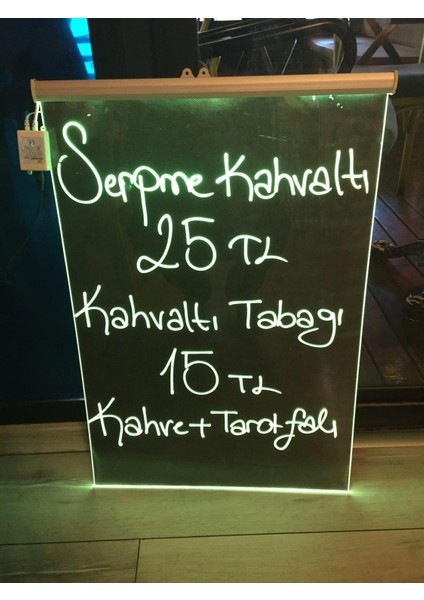 Serpme Kahvaltı
25 TL
Kahvaltı Tabagı
15 TL
Kahve + Tarot falı